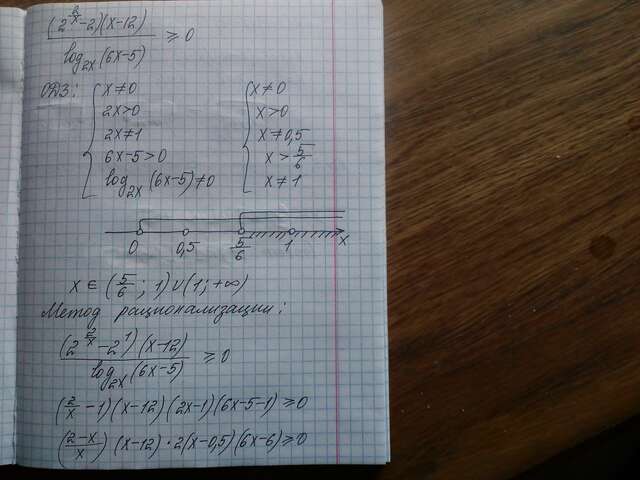 (2^(2/x)-2)(x-12) / log_2x(6x-5) ≥ 0
ОДЗ: { x≠0 { x≠0
2x>0 x>0
2x≠1 x≠0,5
6x-5>0 x>5/6
log_2x(6x-5)≠0 x≠1
0 0,5 5/6 1 x
x ∈ (5/6; 1)∪(1; +∞)
Метод рационализации:
(2^(2/x)-2^1)(x-12) / log_2x(6x-5) ≥ 0
(2/x-1)(x-12)(2x-1)(6x-5-1)≥0
((2-x)/x)(x-12)·2(x-0,5)(6x-6)≥0